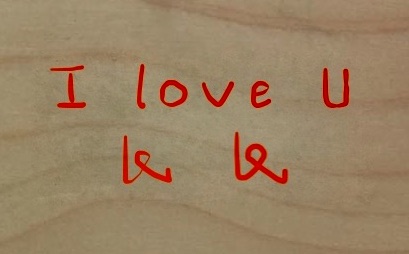 I love U